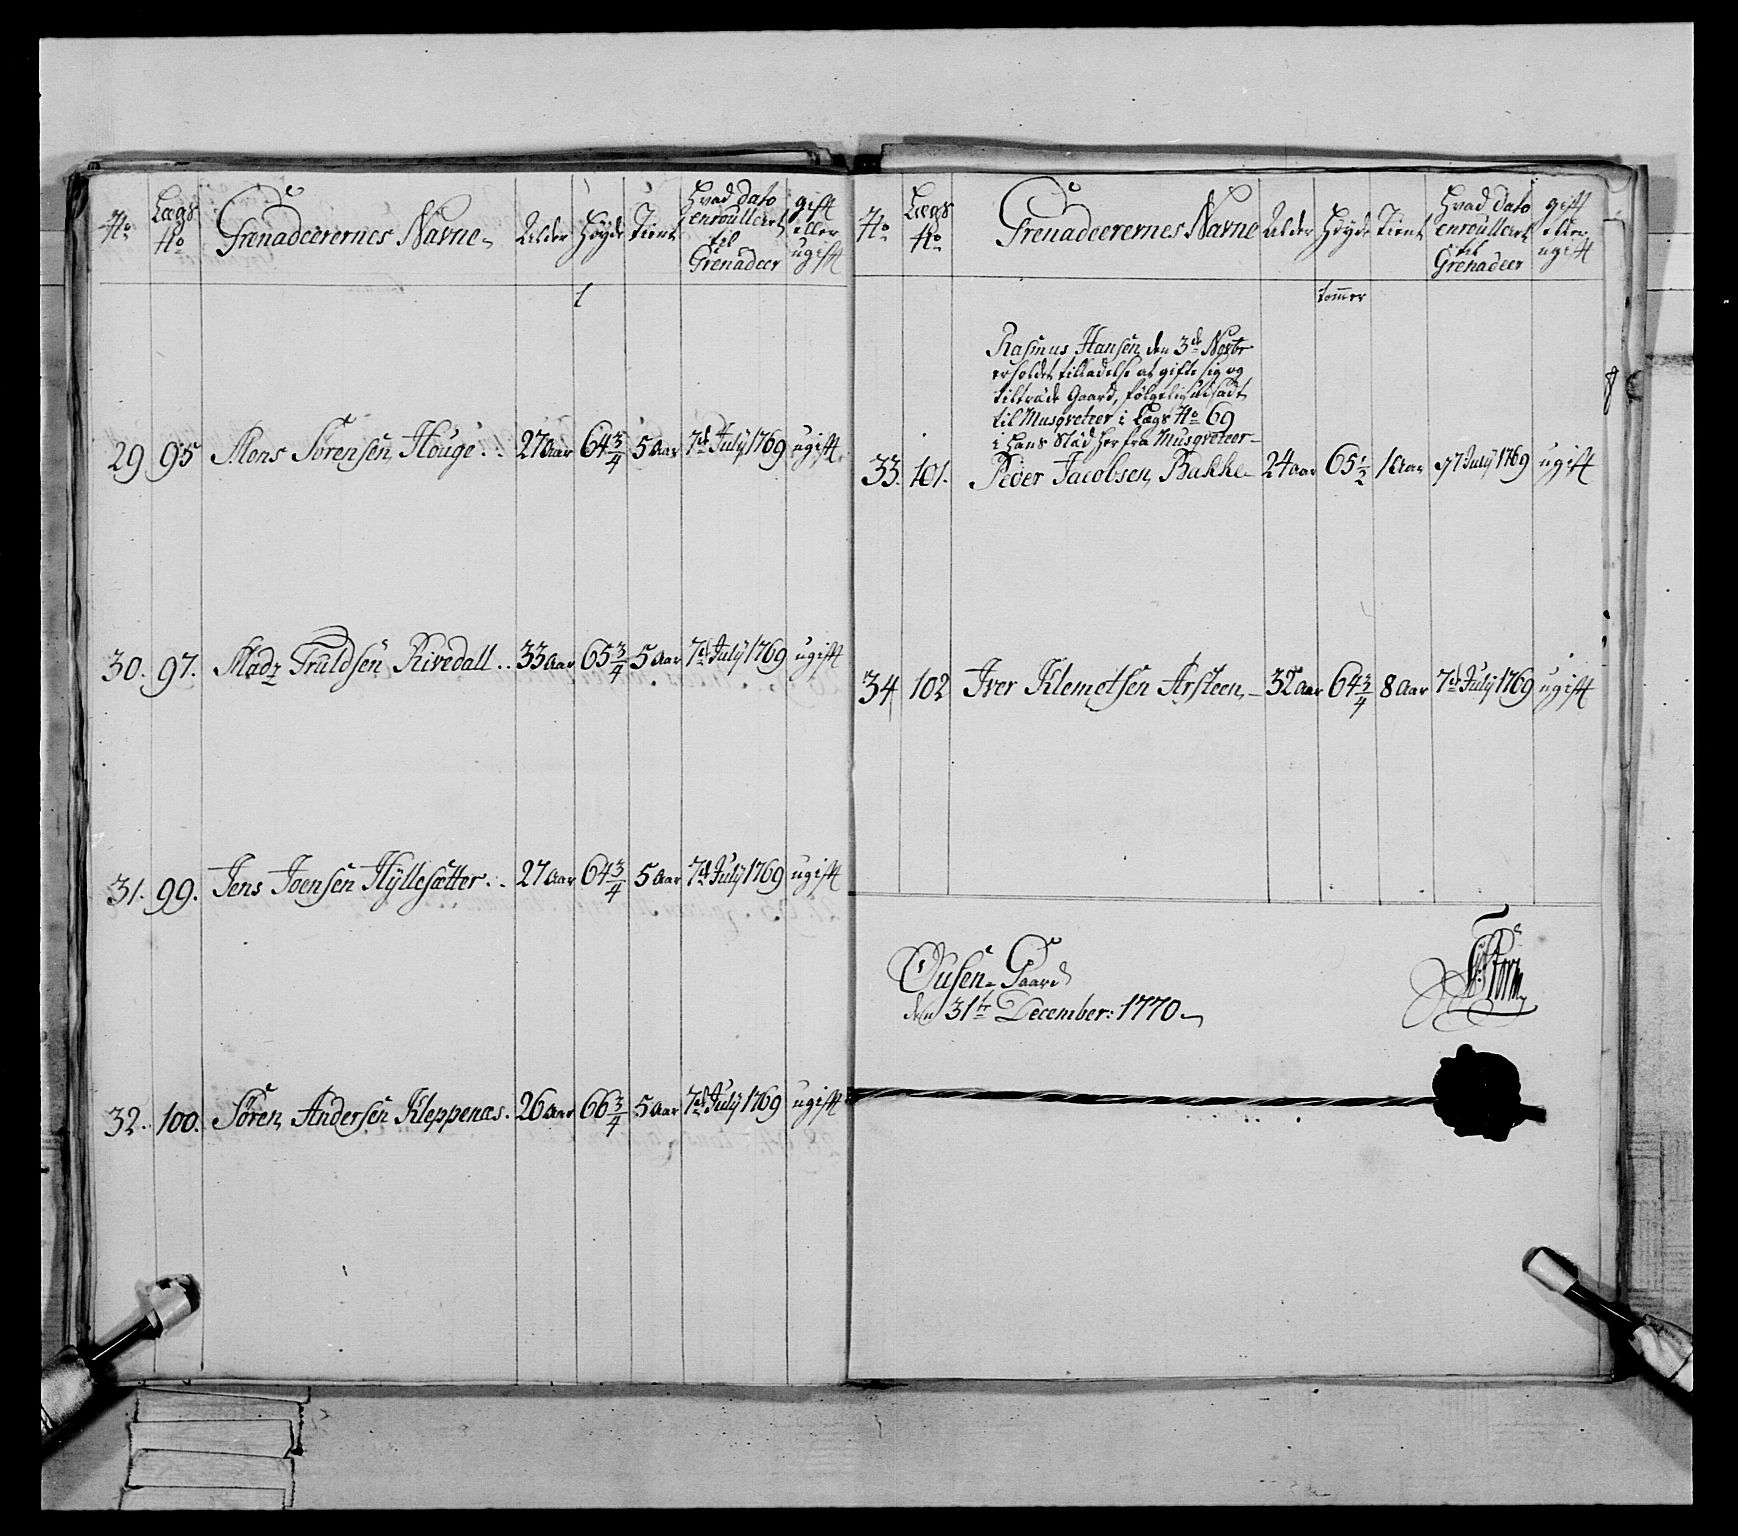 No Lægs No Grenadeerernes Navne Alder Høyde Tient Hvad Dato enroullert til Grenadeer gift eller ugift
29 95 Mons Sörensen Houge 27 Aar 64 3/4 5 Aar 7de July 1769 ugift
30. 97. Madz Truldsen Rivedall 33 Aar 65 3/4 5 Aar 7de July 1769 ugift
31. 99. Jens Joensen Hÿllesætter 27 Aar 64 3/4 5 Aar 7de July 1769 ugift
32. 100. Sören Andersen Kleppenæs. 26 Aar 66 3/4 5 Aar 7de July 1769 ugift
No Lægs No Grenadeerernes Navne Alder Høyde Tient Hvad Dato enroullert til Grenadeer gift eller ugift
tommer
Rasmus Hansen den 3de Novbr
erholdet tilladelse at gifte sig og
tiltræde Gaard, følgelig udsadt
til Musqveteer i Lægs No 69
i hans Stæd herfra Musqveteer
33. 101. Peder Jacobsen Bakke 24 aar 65 1/2 1 Aar 7 July 1769 ugift
34 102 Iver Klemetsen Arsteen 32 Aar 64 3/4 8 Aar 7de July 1769 ugift
Ousen Gaard
den 31te December: 1770
Storm